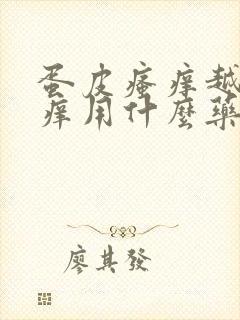 蛋皮瘙痒越
痒用什麼藥
廖其發